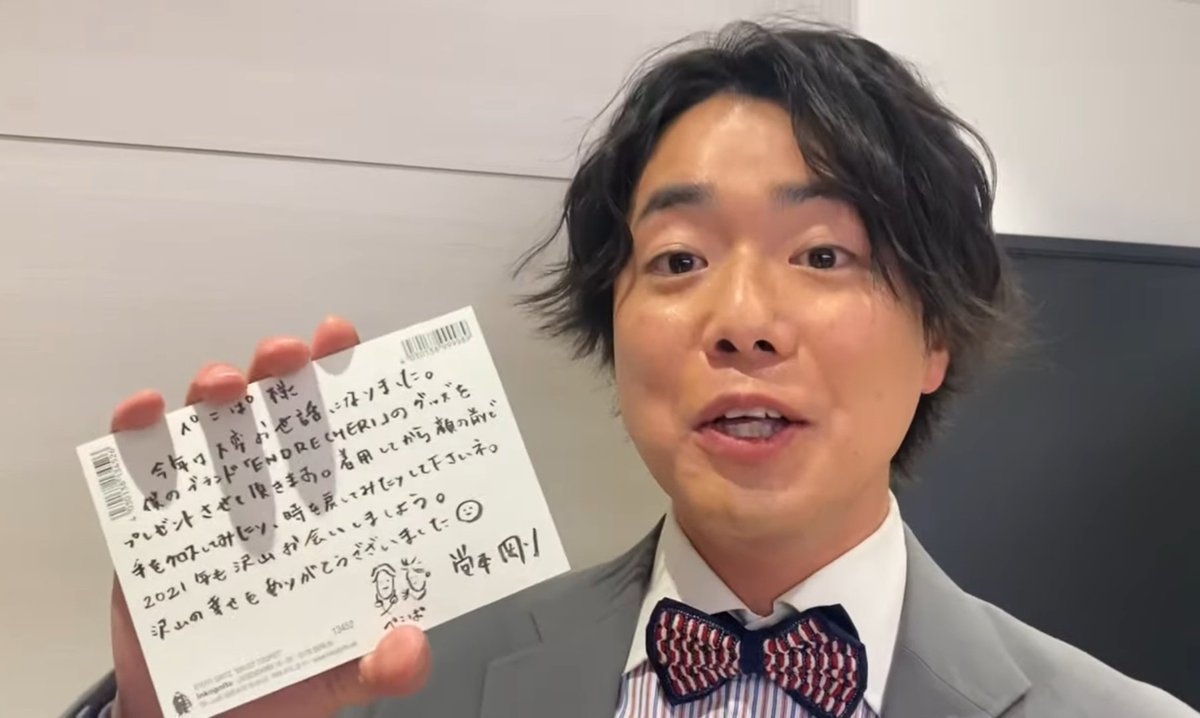 ぺこぱ様
今年は大変お世話になりました。
僕のブランド「ENDRECHERI」のグッズを
プレゼントさせて頂きます。着用してから顔の前で
手をクロスしてみたり、時を戻してみたりして下さいネ。
2021年も沢山お会いしましょう。
沢山の幸せをありがとうございました
堂本剛
ぺこぱ
13452
Inkognito